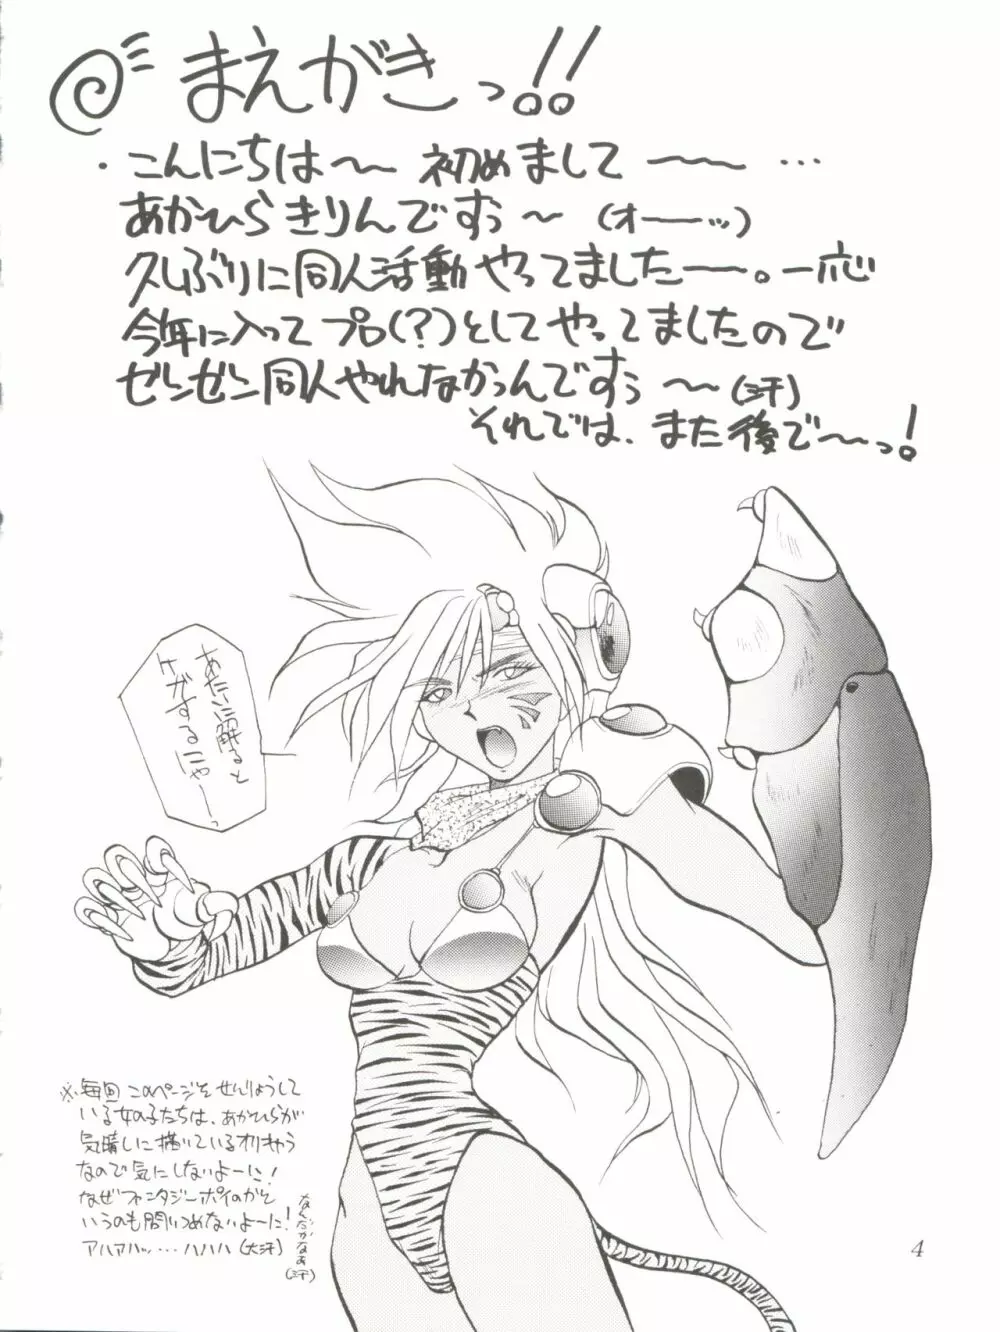 まえがきっ!!
・こんにちは〜 初めまして 〜〜 …
あかひらきりんですぅ〜 (オーーッ)
久しぶりに同人活動やってましたーー。一応
今年に入ってプロ(?)としてやってましたので
ゼンゼン同人やれなかったんですぅ〜(汗)
それでは、また後で〜っ!
あたいに触ると
ケガするにゃーっ
※毎回このページをせんりょうして
いる女の子たちは、あかひらが
気晴しに描いているオリキャラ
なので気にしないよーに!
なぜファンタジーポイのかと
いうのも問いつめないよーに!
アハアハッ…ハハハ(大汗)
なんだかなぁ
(汗)
4